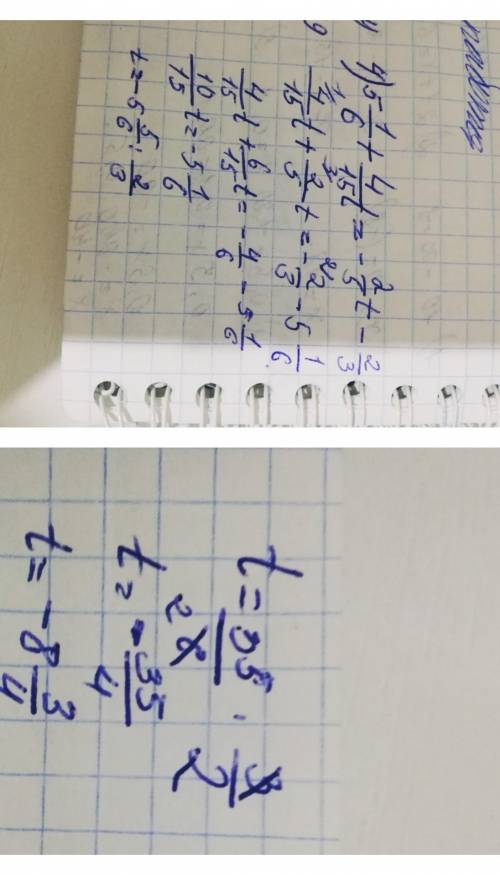 4) 5 1/6 + 4/15 t = - 2/5 t - 2/3
4/15 t + 2/5 t = - 2/3 - 5 1/6
4/15 t + 6/15 t = - 4/6 - 5 1/6
10/15 t = - 5 1/6
t = - 5 5/6 : 2/3
t = 35/6 · 3/2
t = - 35/4
t = - 8 3/4